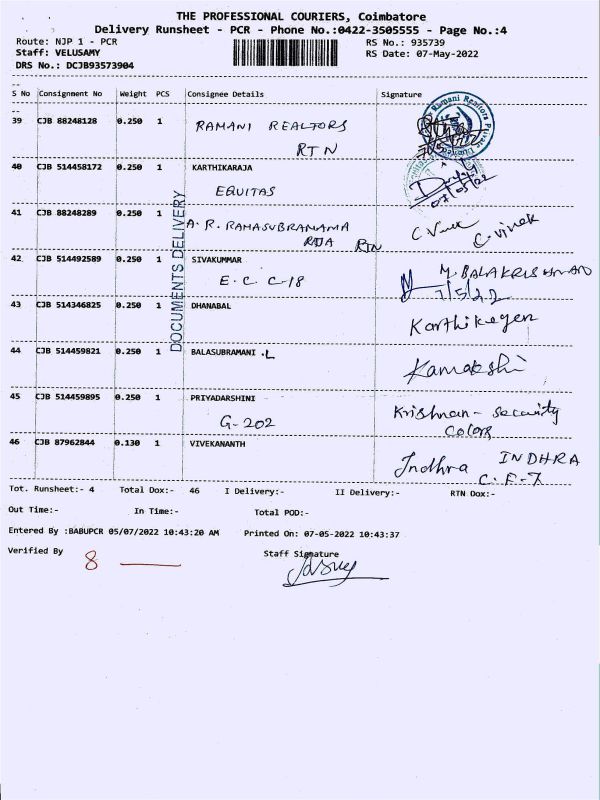 THE PROFESSIONAL COURIERS, Coimbatore
Delivery Runsheet - PCR - Phone No.:0422-3505555 - Page No.:4
Route: NJP 1 - PCR
RS No.: 935739
Staff: VELUSAMY
RS Date: 07-May-2022
DRS No.: DCJB93573904
S No Consignment No Weight PCS Consignee Details Signature
39 CJB 88248128 0.250 1 RAMANI REALTORS
RTN
Ramani Realtors Private
40 CJB 514458172 0.250 1 KARTHIKARAJA
EQUITAS
07/05/22
41 CJB 88248289 0.250 1 A.R. RAMASUBRAMAMA
RAJA RTN
C Vivek C.Vivek
DOCUMENTS DELIVERY
42 CJB 514492589 0.250 1 SIVAKUMMAR
E.C C-18
M.BALAKRISHNAN
7/5/22
43 CJB 514346825 0.250 1 DHANABAL
Karthikeyen
44 CJB 514459821 0.250 1 BALASUBRAMANI .L
Kamakshi
45 CJB 514459895 0.250 1 PRIYADARSHINI
G-202
Krishnan - Security
Color
46 CJB 87962844 0.130 1 VIVEKANANTH
Indhra INDHRA
C.F-7
Tot. Runsheet:- 4 Total Dox:- 46 I Delivery:- II Delivery:- RTN Dox:-
Out Time:- In Time:- Total POD:-
Entered By :BABUPCR 05/07/2022 10:43:20 AM Printed On: 07-05-2022 10:43:37
Verified By 8 Staff Signature